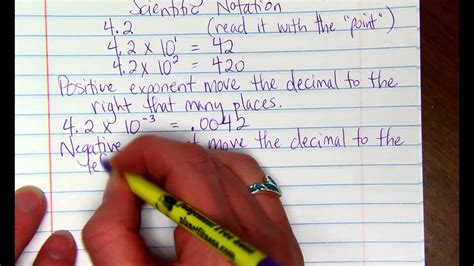 Scientific Notation
4.2 (read it with the "point")
4.2 x 10¹ = 42
4.2 x 10² = 420
Positive exponent move the decimal to the
right that many places.
4.2 x 10⁻³ = .0042
Negative move the decimal to the